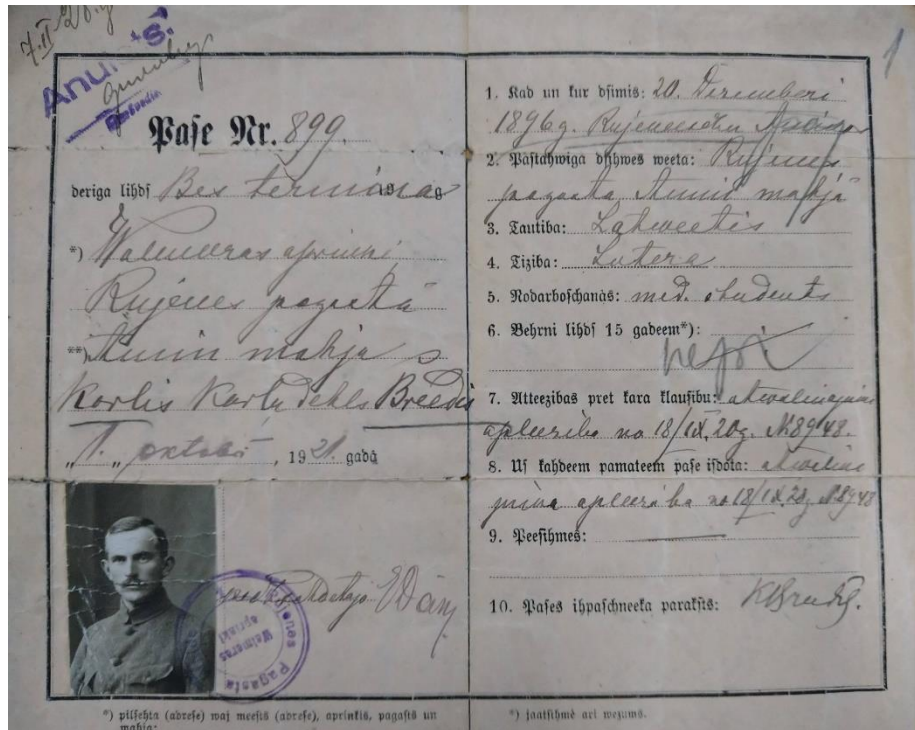 7.II 28.g
Anulets.
Pase Nr. 899.
deriga lihds Bes termina 19 g
*) Walmeras aprinķi
Rujenes pagastā
**) mahja s
Karlis Karļa dehls Breedis
„1.„ oktobri, 1921. gadā
Rujenes Pagasta
Walmeras
aprinķi
*) pilsehta (adrese) waj meests (adrese), aprinkis, pagasts un
mahja:
1
1. Kad un kur dsimis: 20. Dezemberi
1896g. Rujenes
2. Pastahwiga dsihwes weeta: Rujenes
pagasta mahjā
3. Tautiba: Latweetis
4. Tiziba: Lutera
5. Nodarboschanās: med. students
6. Behrni lihds 15 gadeem*):
nepri
7. Atteezibas pret kara klausibu: atwalinajuma
apleeziba no 18/IX. 20g. №8948.
8. Us kahdeem pamateem pase isdota: atwalina
juma apleeziba no 18/IX. 20g. №8948
9. Peesihmes:
10. Pases ihpaschneeka paraksts: KBreedis.
*) jaatsihmē ari wezums.